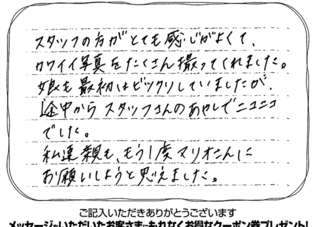 スタッフの方がとても感じがよくて、
カワイイ写真をたくさん撮ってくれました。
娘も最初はビックリしていましたが、
途中からスタッフさんのあやしでニコニコ
でした。
私達親も、もう1度マリオさんに
お願いしようと思えました。
ご記入いただきありがとうございます
メッセージいただいたお客さまにもれなくお得なクーポン券プレゼント!